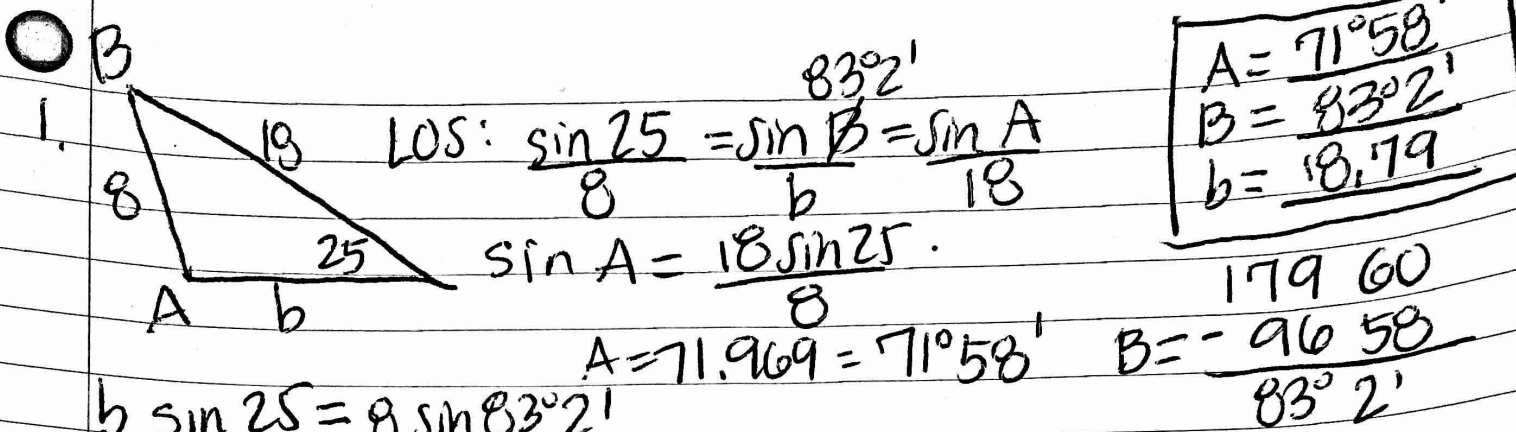 B
1.
18
8
25
A b
83°2'
LOS: sin 25 / 8 = sin B / b = sin A / 18
sin A = 18 sin 25 / 8
A = 71.969 = 71°58'
b sin 25 = 8 sin 83°2'
A = 71°58'
B = 83°2'
b = 18.79
179 60
B = - 96 58
83° 2'